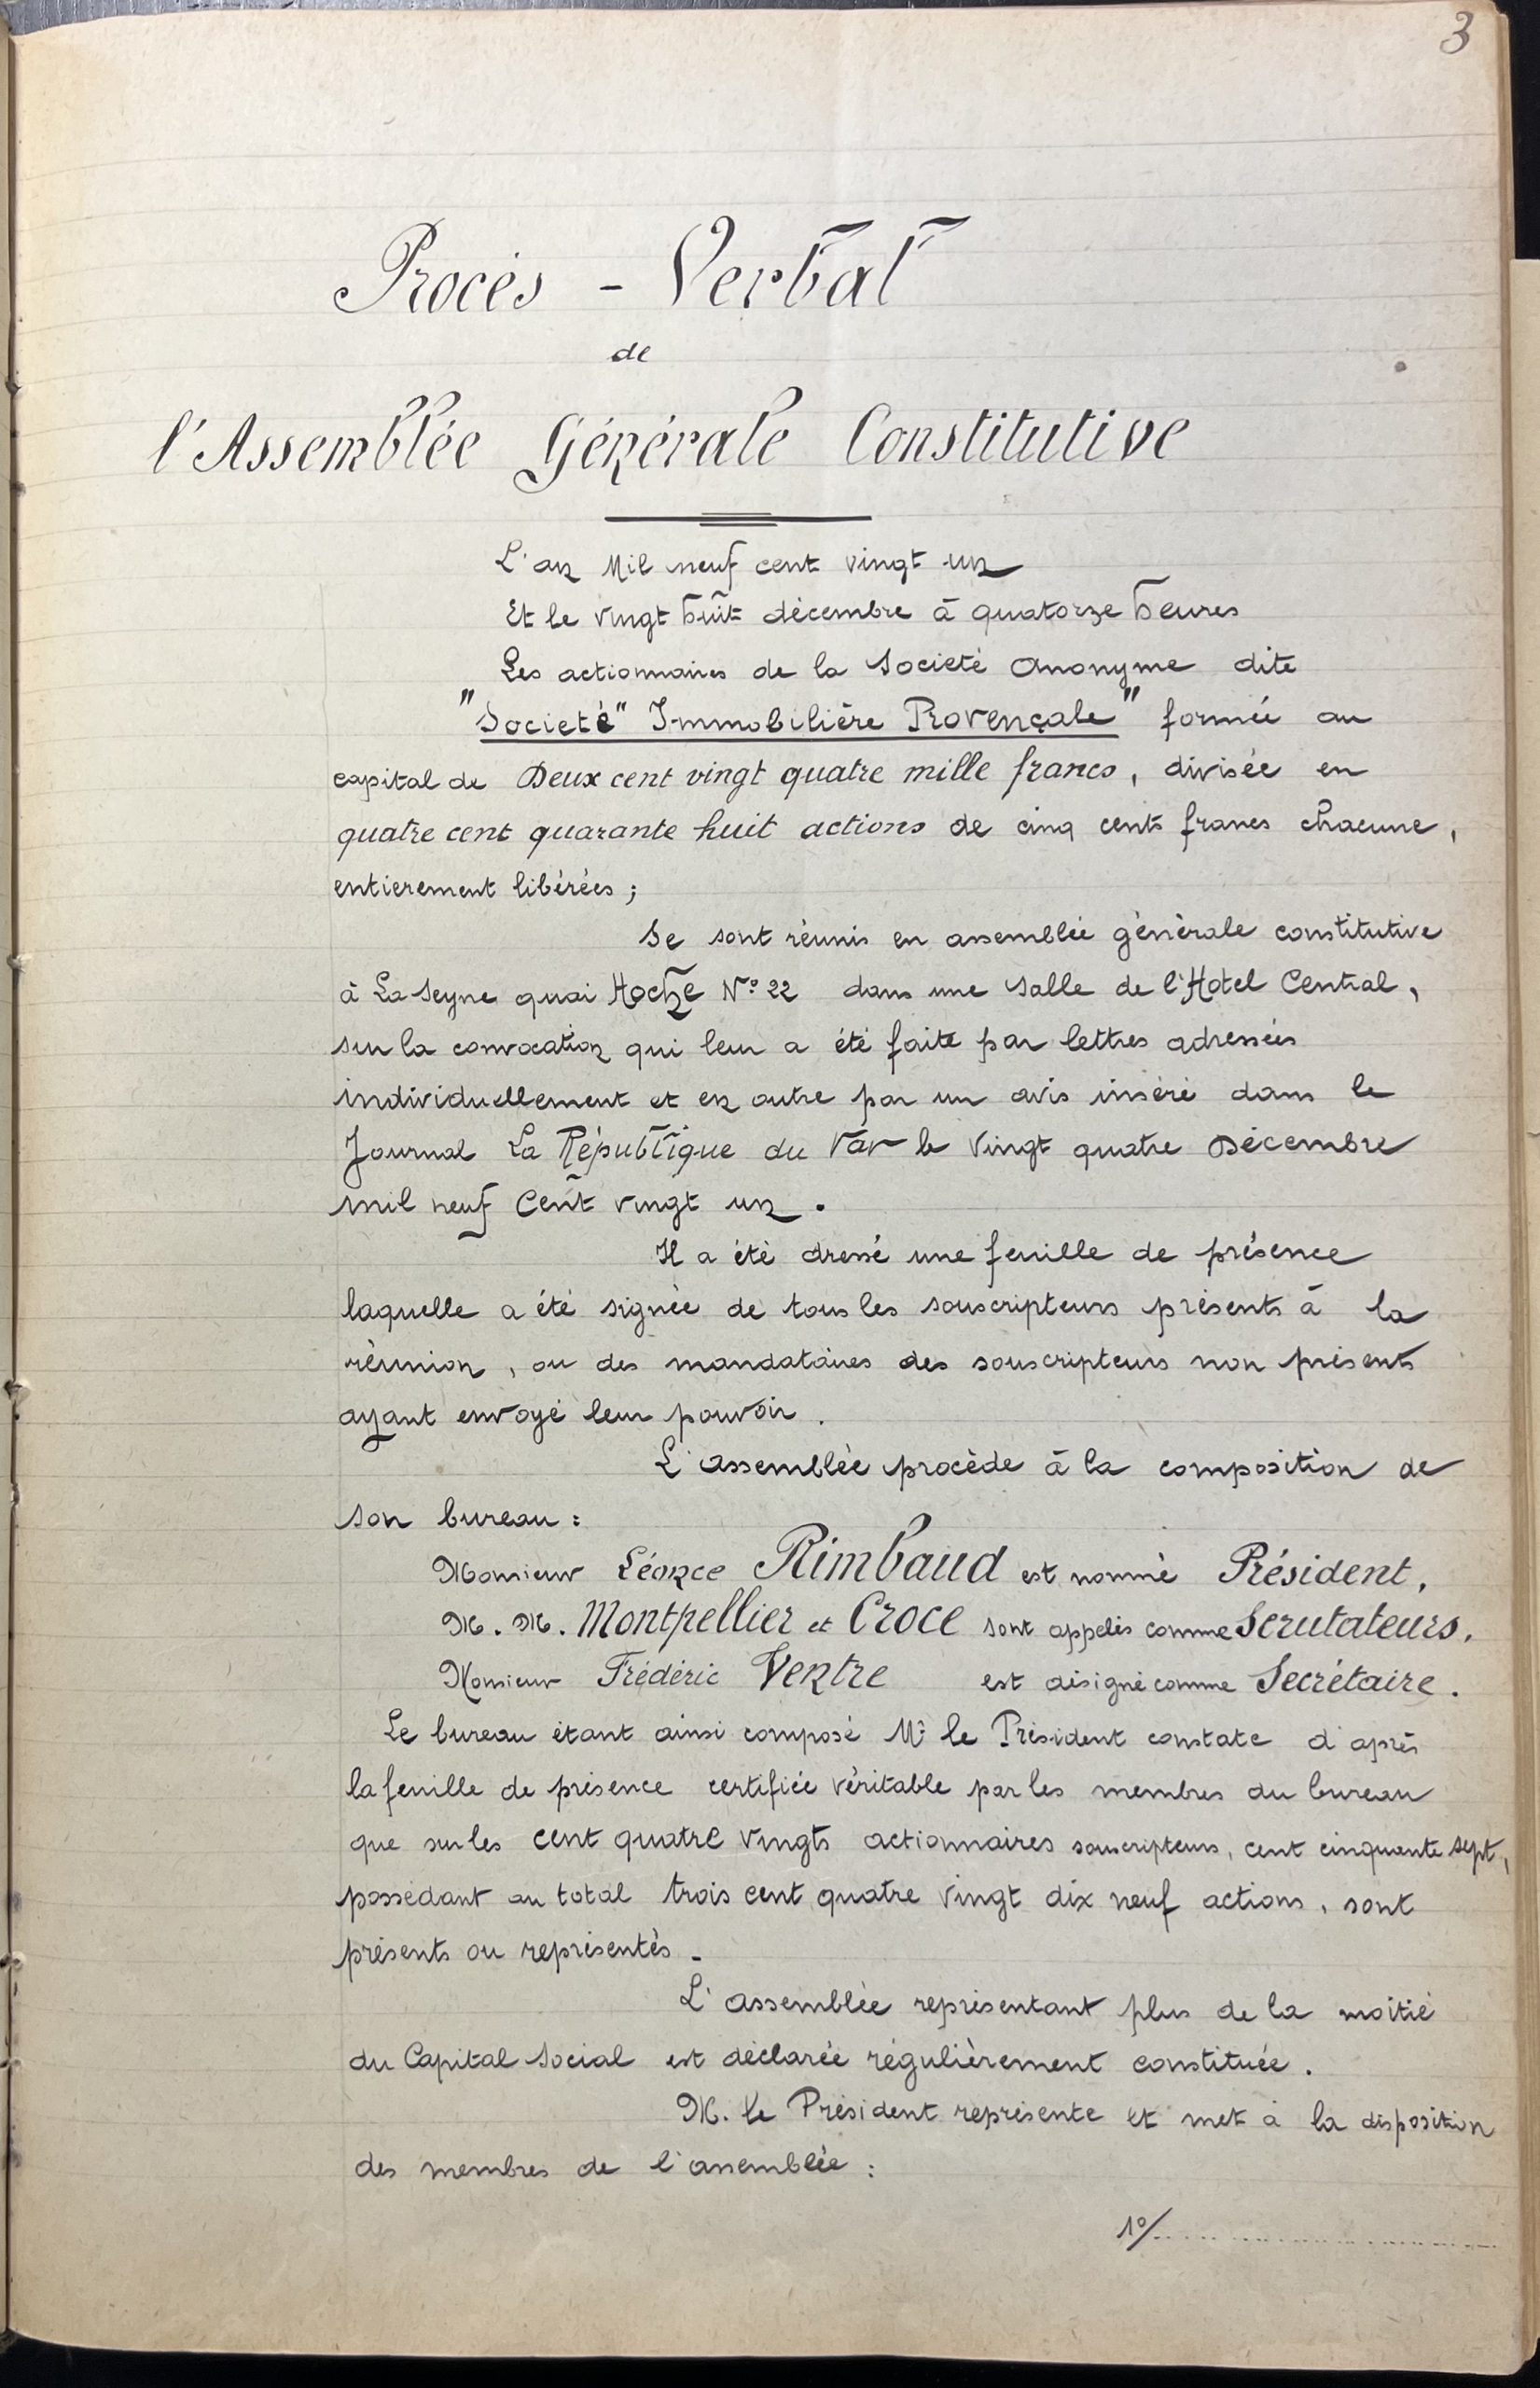 3
Procès - Verbal
de
l'Assemblée Générale Constitutive
L'an Mil neuf cent vingt un
Et le vingt huit décembre à quatorze heures
Les actionnaires de la Societé Anonyme dite
"Societé" Immobilière Provençale" formée au
capital de Deux cent vingt quatre mille francs, divisée en
quatre cent quarante huit actions de cinq cents francs chacune,
entierement libérées ;
Se sont réunis en assemblée générale constitutive
à La Seyne quai Hoche N° 22 dans une Salle de l'Hotel Central,
sur la convocation qui leur a été faite par lettres adressées
individuellement et en outre par un avis inséré dans le
Journal La République du Var le Vingt quatre Décembre
mil neuf Cent vingt un.
Il a été dressé une feuille de présence
laquelle a été signée de tous les souscripteurs présents à la
réunion, ou des mandataires des souscripteurs non présents
ayant envoyé leur pouvoir.
L'assemblée procède à la composition de
son bureau :
Monsieur Léonce Rimbaud est nommé Président.
M. M. Montpellier et Croce sont appelés comme Scrutateurs.
Monsieur Frédéric Ventre est désigné comme Secrétaire.
Le bureau étant ainsi composé Mr le Président constate d'après
la feuille de présence certifiée véritable par les membres du bureau
que sur les cent quatre vingts actionnaires souscripteurs, cent cinquante sept,
possédant au total trois cent quatre vingt dix neuf actions, sont
présents ou représentés -
L'assemblée représentant plus de la moitié
du Capital Social est déclarée régulièrement constituée.
M. le Président représente et met à la disposition
des membres de l'assemblée :
1°/...........................